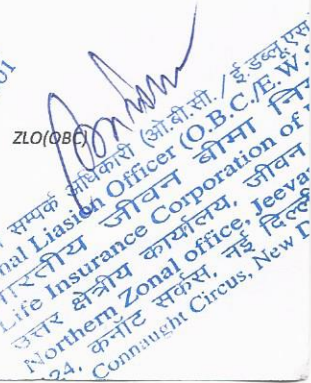 01
ZLO(OBC)
सम्पर्क अधिकारी (ओ.बी.सी. / ई.डब्लू.एस
nal Liasion Officer (O.B.C./E.W.
भारतीय जीवन बीमा नि
Life Insurance Corporation of
उत्तर क्षेत्रीय कार्यालय, जीवन
Northern Zonal office, Jeevan
24, कनॉट सर्कस, नई दिल्ली
Connaught Circus, New D